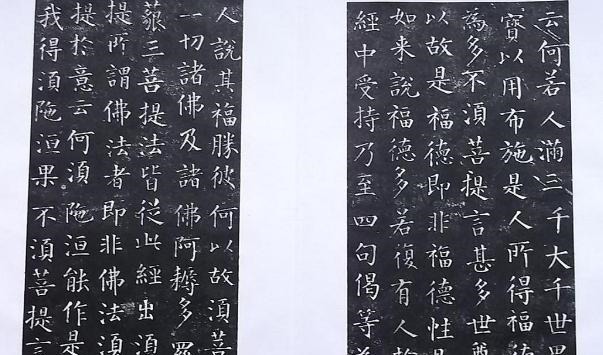 云何若人滿三千大千世界
寶以用布施是人所得福德
為多不須菩提言甚多世尊
以故是福德即非福德性是
如来說福德多若復有人於
經中受持乃至四句偈等為
人說其福勝彼何以故須菩
一切諸佛及諸佛阿耨多羅
藐三菩提法皆從此經出須
提所謂佛法者即非佛法須
提於意云何須陁洹能作是
我得須陁洹果不須菩提言